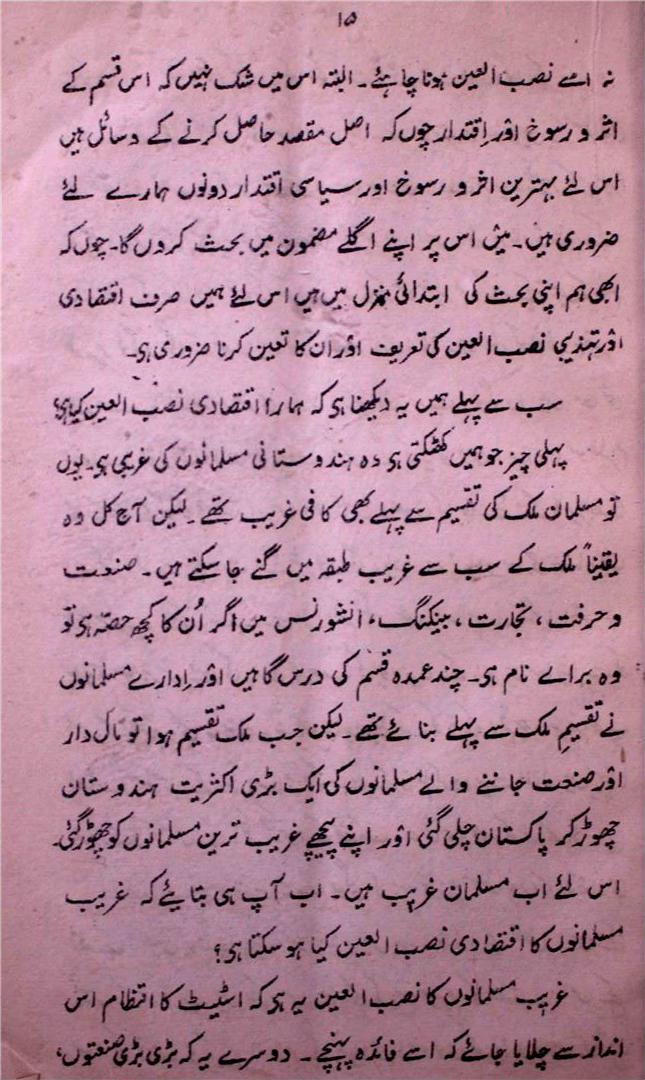 ۱۵
نہ اسے نصب العین ہونا چاہئے۔ البتہ اس میں شک نہیں کہ اس قسم کے
اثر و رسوخ اور اِقتدار چوں کہ اصل مقصد حاصل کرنے کے وسائل ہیں
اس لئے بہترین اثر و رسوخ اور سیاسی اقتدار دونوں ہمارے لئے
ضروری ہیں۔ میں اس پر اپنے اگلے مضمون میں بحث کروں گا۔ چوں کہ
ابھی ہم اپنی بحث کی ابتدائی منزل میں ہیں اس لئے ہمیں صرف اقتصادی
اور تہذیبی نصب العین کی تعریف اور ان کا تعین کرنا ضروری ہی۔
سب سے پہلے ہمیں یہ دیکھنا ہی کہ ہمارا اقتصادی نصب العین کیا ہی؟
پہلی چیز جو ہمیں کھٹکتی ہی وہ ہندوستانی مسلمانوں کی غریبی ہی۔ یوں
تو مسلمان ملک کی تقسیم سے پہلے بھی کافی غریب تھے۔ لیکن آج کل وہ
یقیناً ملک کے سب سے غریب طبقہ میں گنے جا سکتے ہیں۔ صنعت
و حرفت، تجارت، بینکنگ، انشورنس میں اگر اُن کا کچھ حصّہ ہی تو
وہ براے نام ہی۔ چند عمدہ قسم کی درس گاہیں اور اِدارے مسلمانوں
نے تقسیمِ ملک سے پہلے بنائے تھے۔ لیکن جب ملک تقسیم ہوا تو مال دار
اور صنعت جاننے والے مسلمانوں کی ایک بڑی اکثریت ہندوستان
چھوڑ کر پاکستان چلی گئی اور اپنے پیچھے غریب ترین مسلمانوں کو چھوڑ گئی۔
اس لئے اب مسلمان غریب ہیں۔ اب آپ ہی بتایئے کہ غریب
مسلمانوں کا اقتصادی نصب العین کیا ہو سکتا ہی؟
غریب مسلمانوں کا نصب العین یہ ہی کہ اسٹیٹ کا انتظام اس
انداز سے چلایا جائے کہ اسے فائدہ پہنچے۔ دوسرے یہ کہ بڑی بڑی صنعتوں،